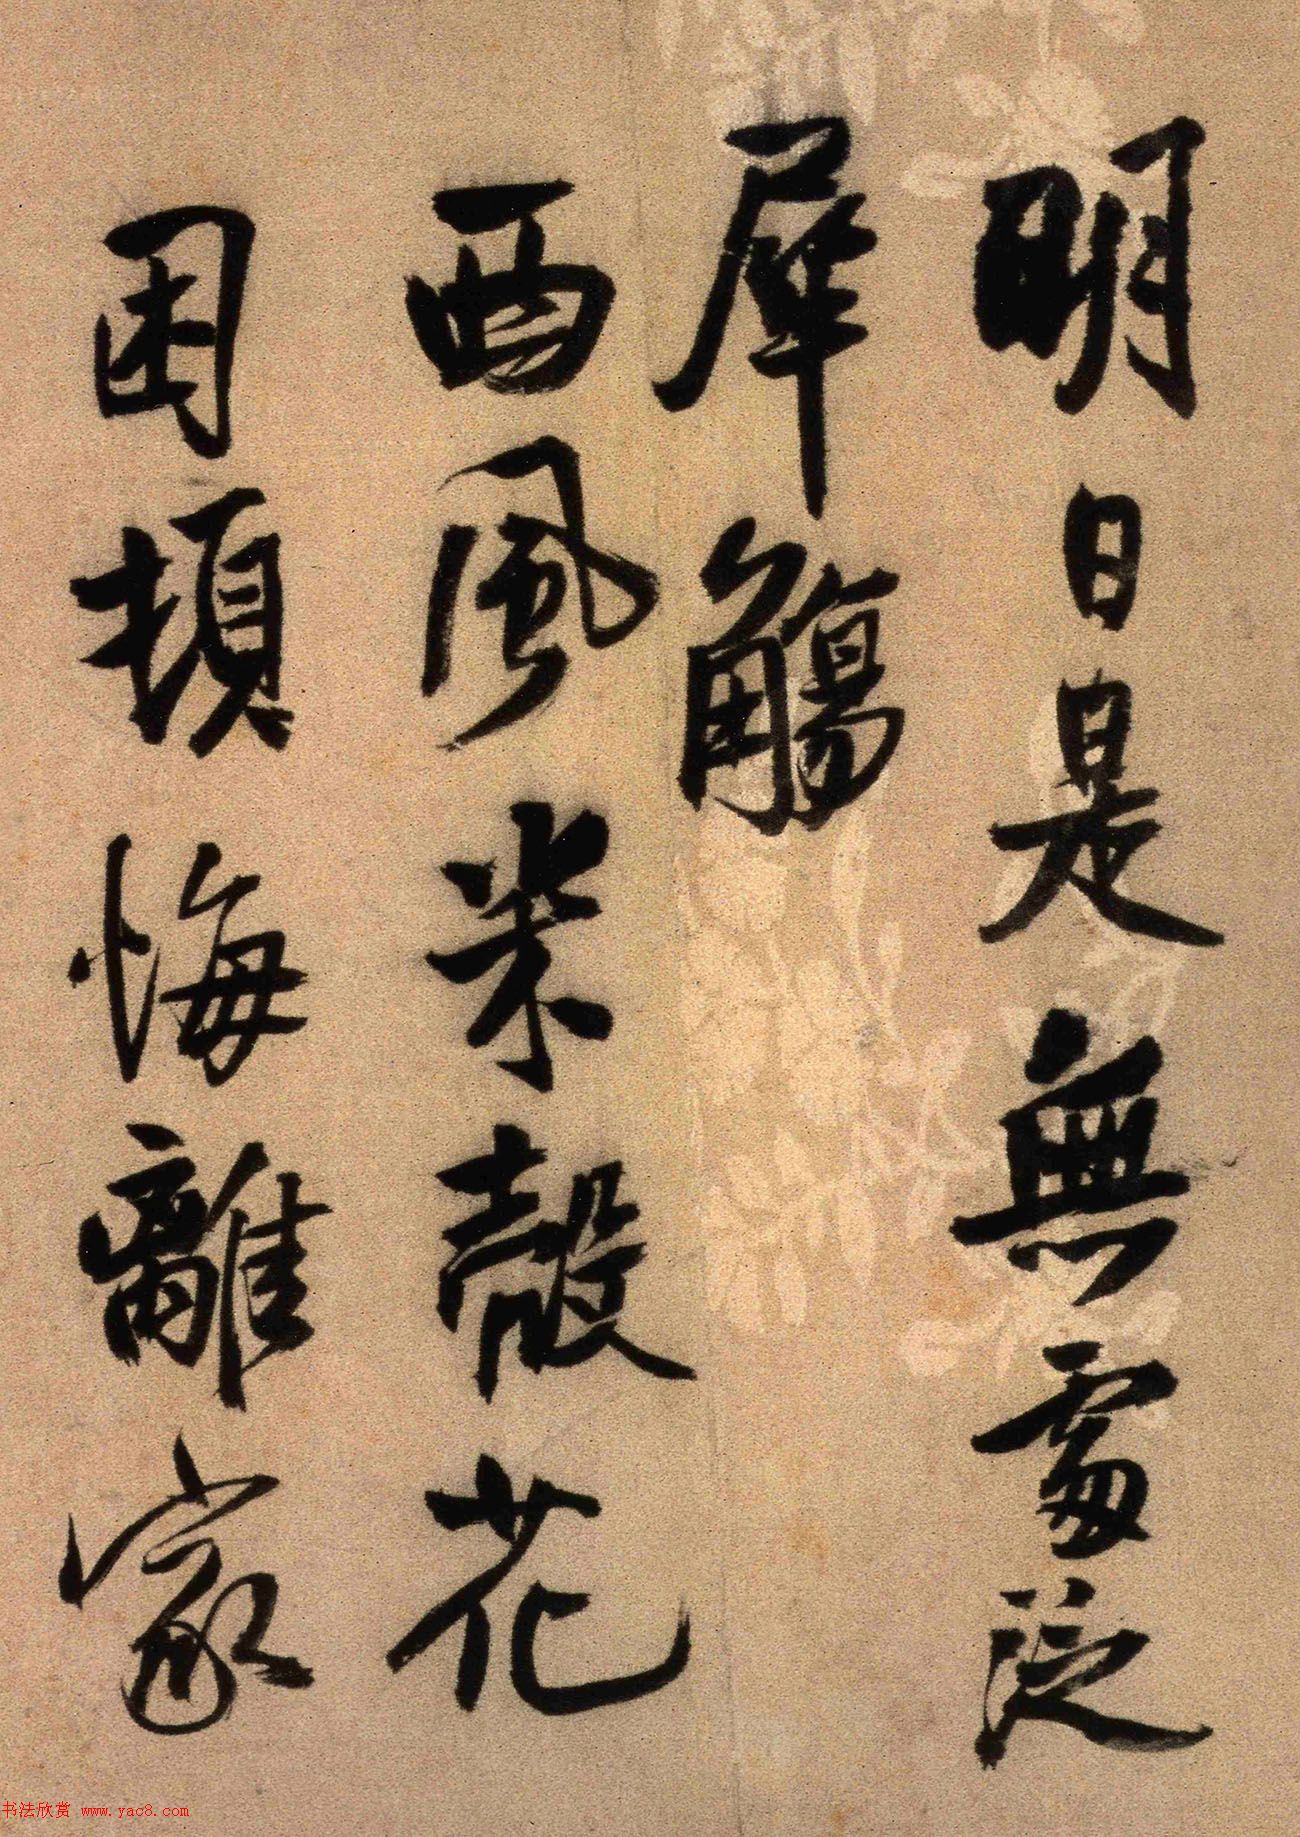 明日是無處泛
犀觴
西風米殼花
困頓悔離家
书法欣赏 www.yac8.com